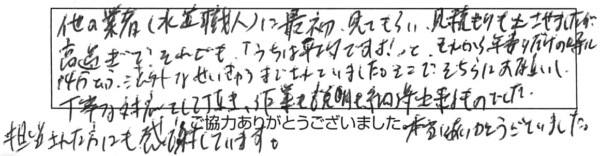 他の業者(水道職人)に最初、見てもらい、見積もりも出させましたが
高過ぎで、それでも「うちは平均ですよ!」と、それから年寄りだけの時に
14万という せいきゅうまでされていました。そこで、そちらにお願いし、
丁寧な対応をして頂き、作業も説明も納得出来るものでした。
担当された方にも感謝しています。
本当に有りがとうございました。
ご協力ありがとうございました